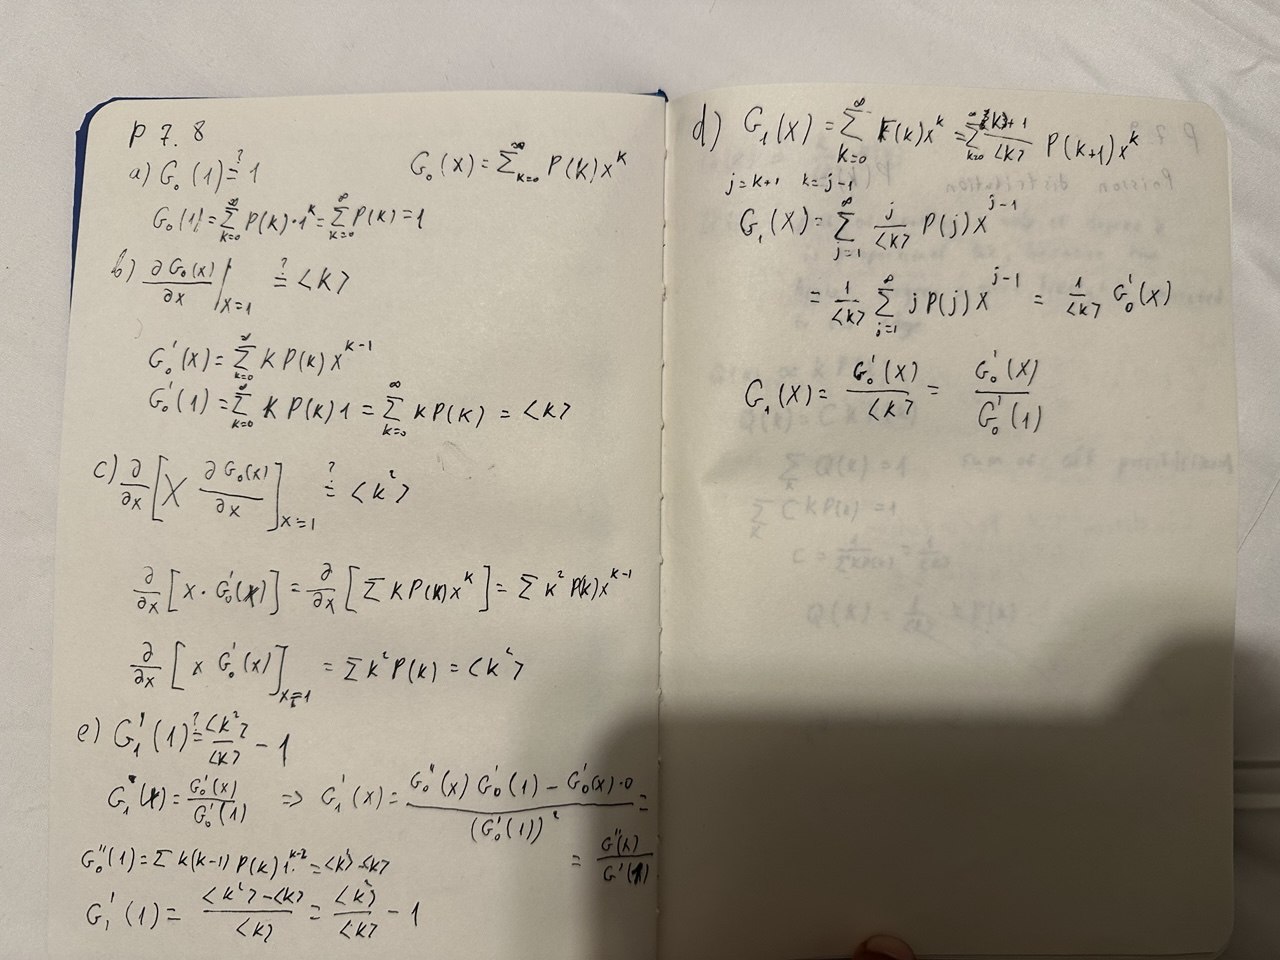 P 7.8
a) G₀(1) ≟ 1    G₀(x) = Σ_{k=0}^∞ P(k)x^k
G₀(1) = Σ_{k=0}^∞ P(k)·1^k = Σ_{k=0}^∞ P(k) = 1
b) ∂G₀(x)/∂x |_{x=1} ≟ <k>
G₀'(x) = Σ_{k=0}^∞ k P(k) x^{k-1}
G₀'(1) = Σ_{k=0}^∞ k P(k) 1 = Σ_{k=0}^∞ k P(k) = <k>
c) ∂/∂x [x ∂G₀(x)/∂x]_{x=1} ≟ <k²>
∂/∂x [x · G₀'(x)] = ∂/∂x [Σ k P(k) x^k] = Σ k² P(k) x^{k-1}
∂/∂x [x G₀'(x)]_{x=1} = Σ k² P(k) = <k²>
e) G₁'(1) ≟ <k²>/<k> - 1
G₁(x) = G₀'(x)/G₀'(1) => G₁'(x) = (G₀''(x) G₀'(1) - G₀'(x)·0)/(G₀'(1))² =
= G''(x)/G'(1)
G₀''(1) = Σ k(k-1) P(k) 1^{k-2} = <k²> - <k>
G₁'(1) = (<k²> - <k>)/<k> = <k²>/<k> - 1
d) G₁(x) = Σ_{k=0}^∞ F(k)x^k = Σ_{k=0}^∞ (k+1)/<k> P(k+1)x^k
j = k+1    k = j-1
G₁(x) = Σ_{j=1}^∞ j/<k> P(j) x^{j-1}
= 1/<k> Σ_{j=1}^∞ j P(j) x^{j-1} = 1/<k> G₀'(x)
G₁(x) = G₀'(x)/<k> = G₀'(x)/G₀'(1)